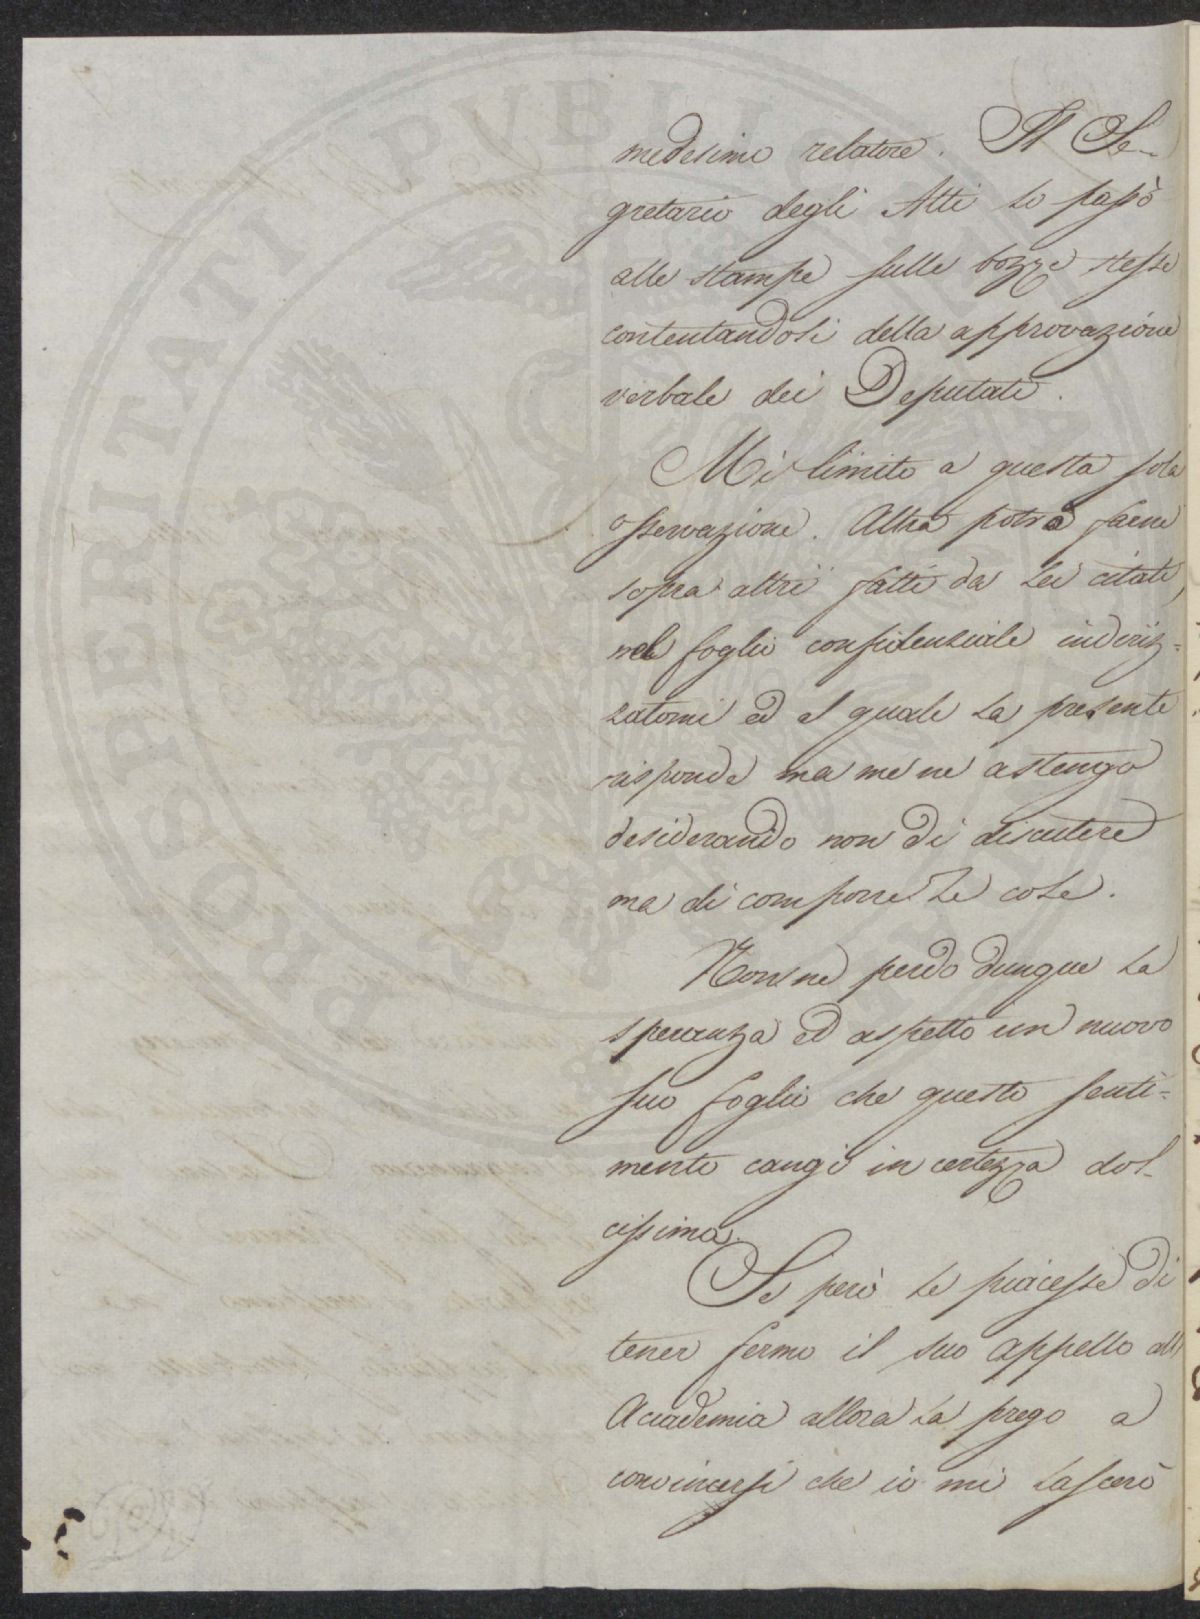 medesimo relatore. Il Se-
gretario degli Atti lo passò
alle stampe sulle bozze stesse
contentandosi della approvazione
verbale dei Deputati.
Mi limito a questa sola
osservazione. Altra potrò farne
sopra altri fatti da Lei citati,
nel foglio confidenziale indiriz=
zatomi ed al quale la presente
risponde ma me ne astengo
desiderando non di discutere
ma di comporre le cose.
Non ne perdo dunque la
speranza ed aspetto un nuovo
suo foglio che questo senti=
mento cangi in certezza dol-
cissima.
Se però le piacesse di
tener fermo il suo appello all'
Accademia allora la prego a
convincersi che io mi lascerò
PROSPERITATI PVBLICAE